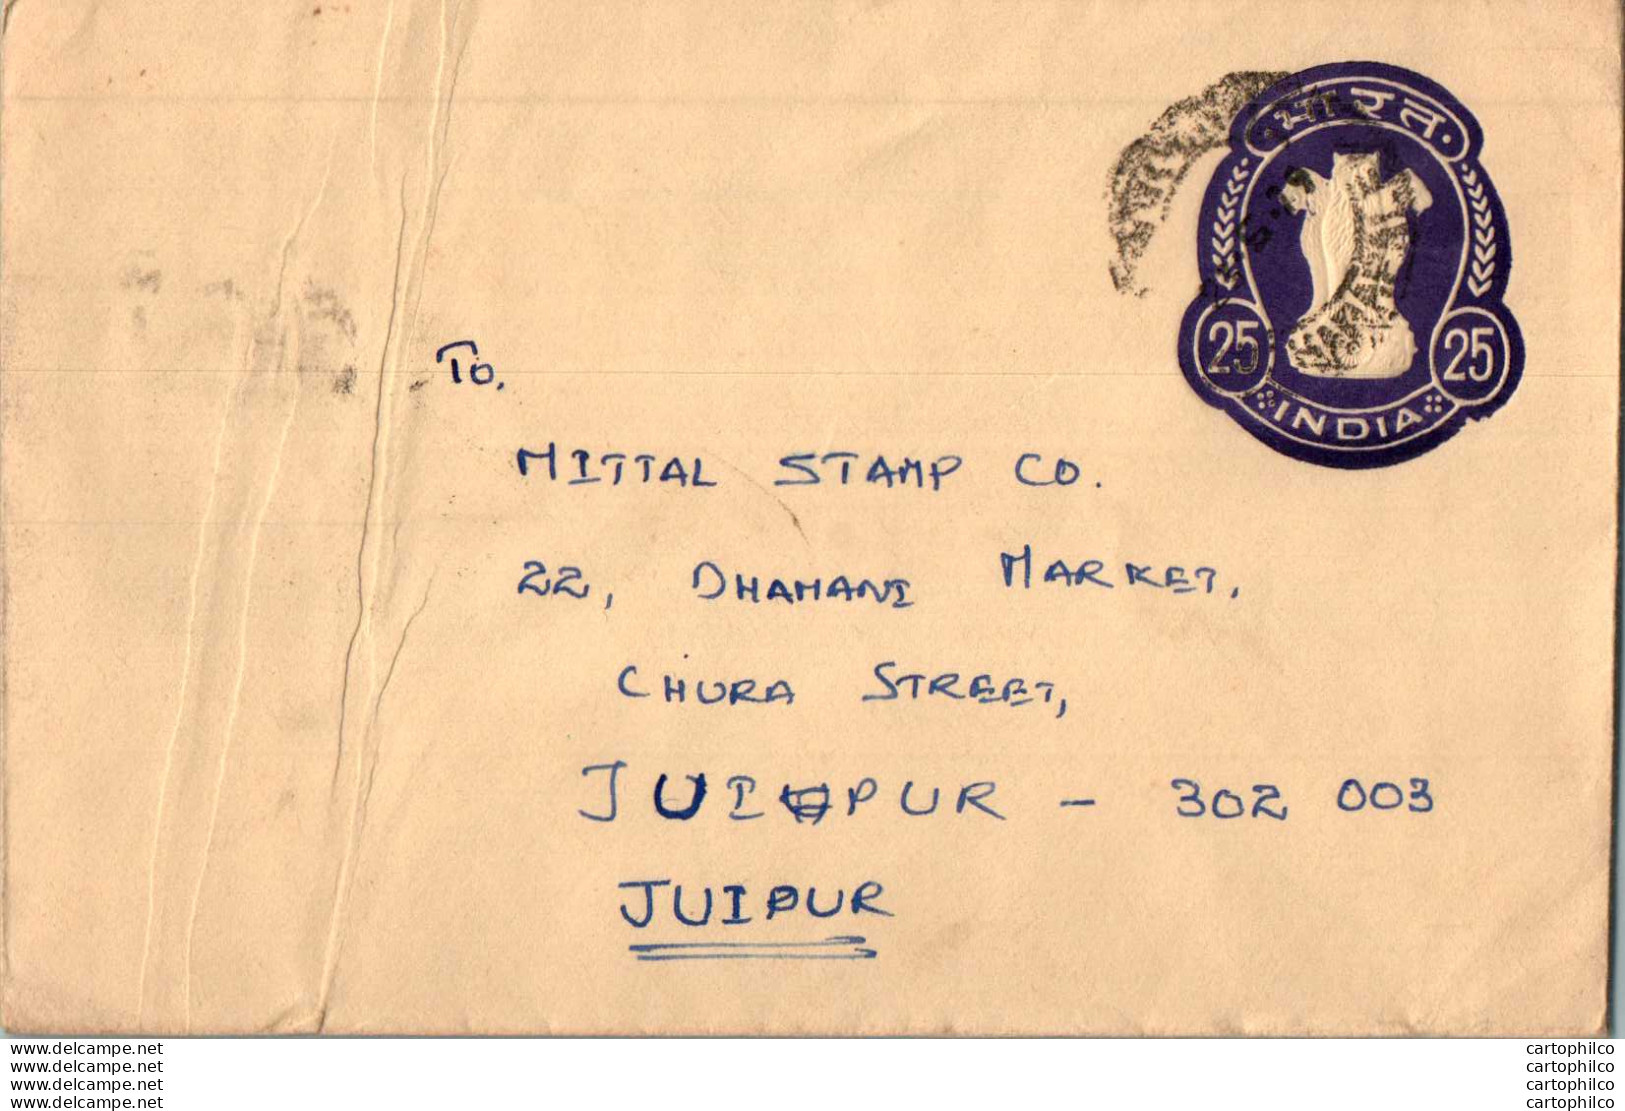 भारत
25 25
INDIA
To,
MITTAL STAMP CO.
22, DHAMANI MARKET,
CHURA STREET,
JUIPUR - 302 003
JUIPUR
www.delcampe.net cartophilco
www.delcampe.net cartophilco
www.delcampe.net cartophilco
www.delcampe.net cartophilco